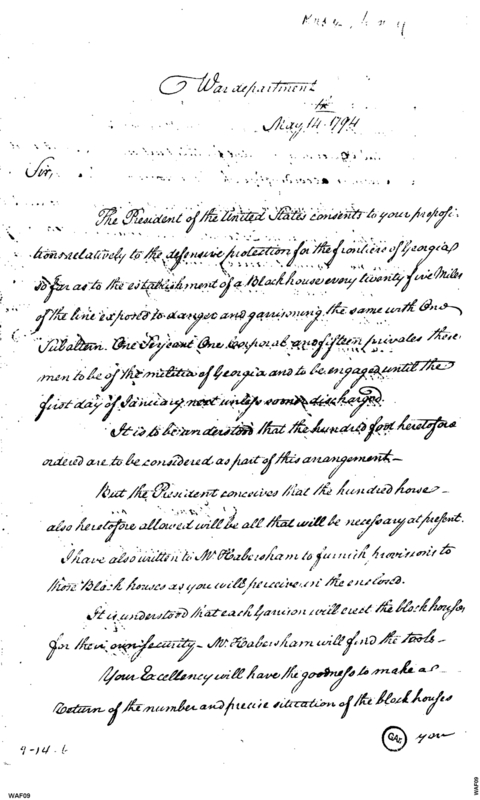 War department
May 14th 1794
Sir,
The President of the United States consents to your proposi-
tions relatively to the defensive protection for the frontiers of Georgia
so far as to the establishment of a Block house every twenty five Miles
of the line exposed to danger and garrisoning the same with One
Subaltern. One Serjeant One Corporal and fifteen privates these
men to be of the militia of Georgia and to be engaged until the
first day of January next unless sooner discharged.
It is to be understood that the hundred foot heretofore
ordered are to be considered as part of this arangement-
But the President conceives that the hundred horse-
also heretofore allowed will be all that will be necessary at present.
I have also written to Mr Habersham to furnish provisions to
those Block houses as you will perceive in the enclosed.
It is understood that each Garrison will erect the block houses
for their own security- Mr Habersham will find the tools-
Your Excellency will have the goodness to make a-
return of the number and precise situation of the block houses
you
GAs
9-14.6
WAF09
WAF09